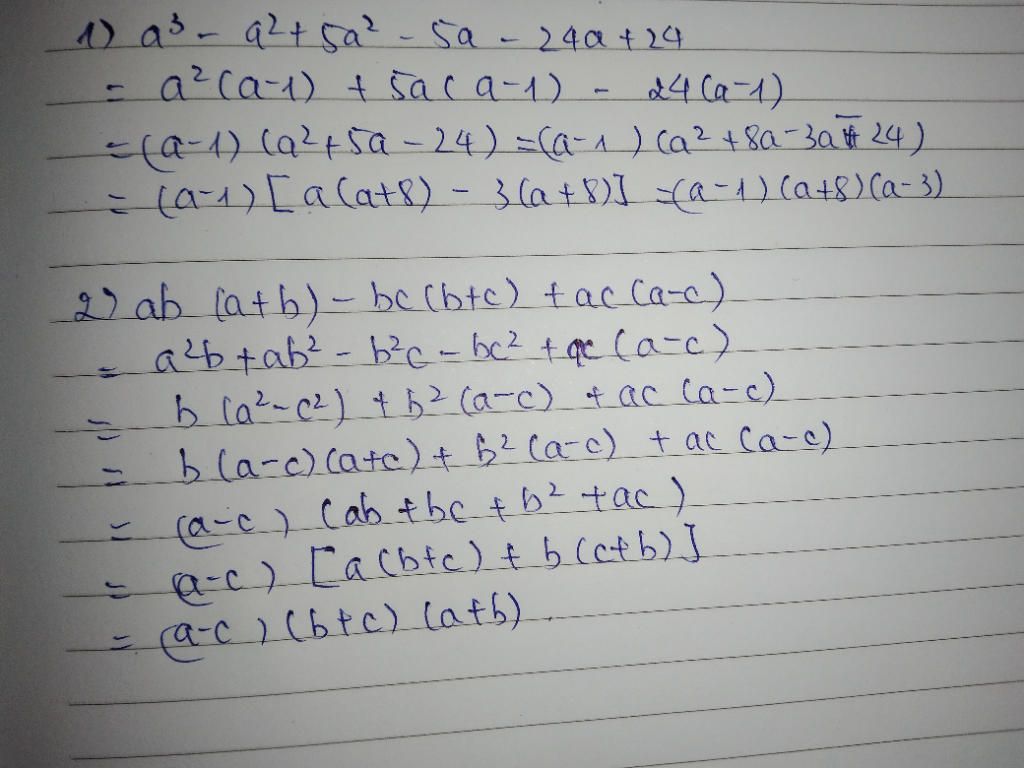 1) a³ - a² + 5a² - 5a - 24a + 24
= a² (a-1) + 5a (a-1) - 24 (a-1)
= (a-1) (a² + 5a - 24) = (a-1) (a² + 8a - 3a - 24)
= (a-1) [a (a+8) - 3 (a+8)] = (a-1) (a+8) (a-3)
2) ab (a+b) - bc (b+c) + ac (a-c)
= a²b + ab² - b²c - bc² + ac (a-c)
= b (a² - c²) + b² (a-c) + ac (a-c)
= b (a-c) (a+c) + b² (a-c) + ac (a-c)
= (a-c) (ab + bc + b² + ac)
= (a-c) [a (b+c) + b (c+b)]
= (a-c) (b+c) (a+b).